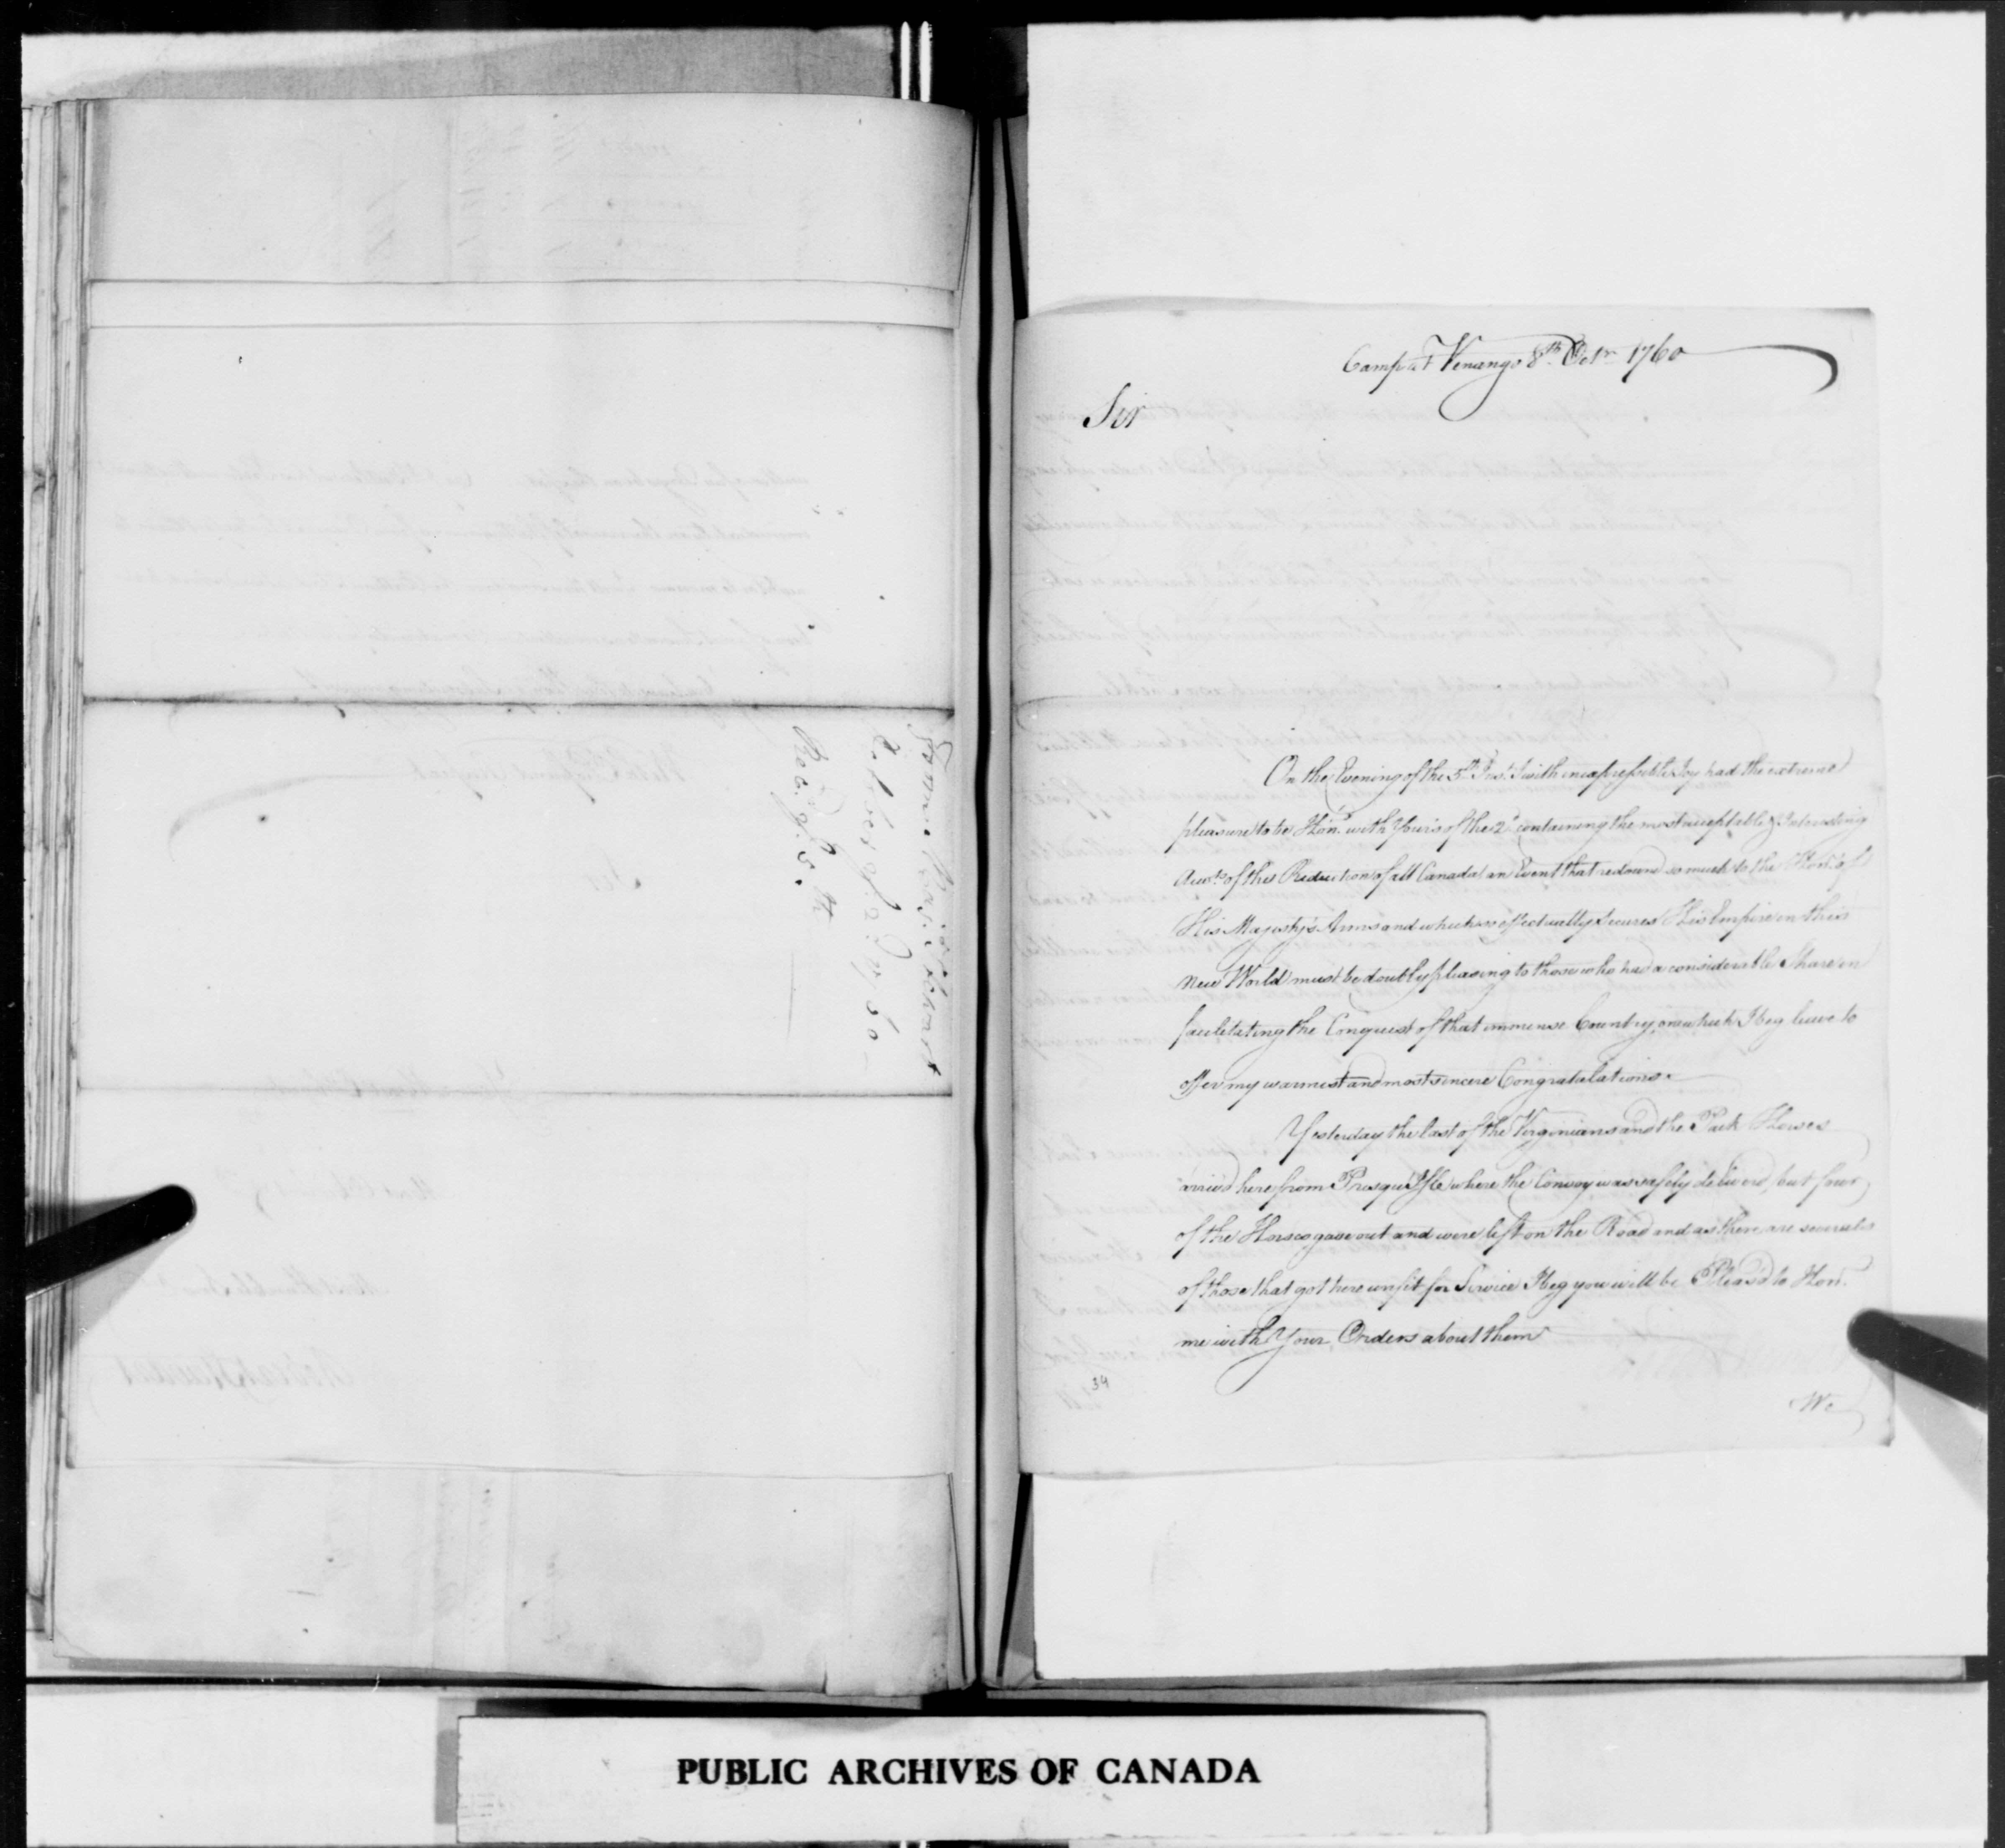 From Major Stewart
October 2d 1760
Rec. ye 5. th
Camp at Venango 8th Octr 1760
Sir
On the Evening of the 5th Inst I with inexpressible Joy had the extreme
pleasure to be Hon'd with Yours of the 2d containing the most acceptable & Interesting
Accots of the Reduction of all Canada an Event that redound so much to the Honr of
His Majesty's Arms and which so effectually secures His Empire in this
New World must be doubly pleasing to those who had a considerable Share in
facilitating the Conquest of that immense Country, on which I beg leave to
offer my warmest and most sincere Congratulations.
Yesterday the last of the Virginians and the Pack Horses
arriv'd here from Presqu Isle where the Convoy was safely deliver'd but four
of the Horses gave out and were left on the Road and as there are severals
of those that got here unfit for Service I beg you will be Pleas'd to Honr
me with Your Orders about them
34
We
PUBLIC ARCHIVES OF CANADA